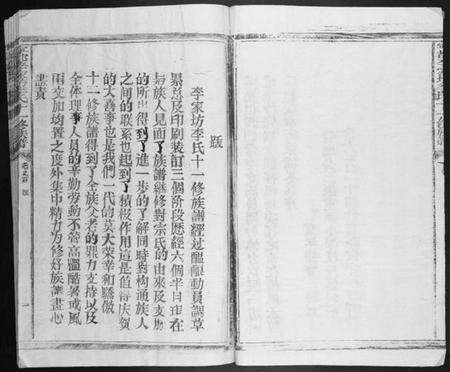 跋
李家坊李氏十一修族譜經过醖釀動員譜草
累总及印刷装訂三個阶段歷經六個半月現在
与族人見面了族譜継修対宗氏的由來及支脉
的所出得到了進一歩的了解同時對构通族人
之间的联系也起到了積极作用這是值得庆贺
的大喜事也是我們一代的莫大荣幸和驕傲
十一修族譜得到了全族父老的鼎力支持以及
全体理事人員的辛勤劳動不管高温酷暑或風
雨交加均置之度外集中精力为修好族譜盡心
盡責
卷之首 跋
一